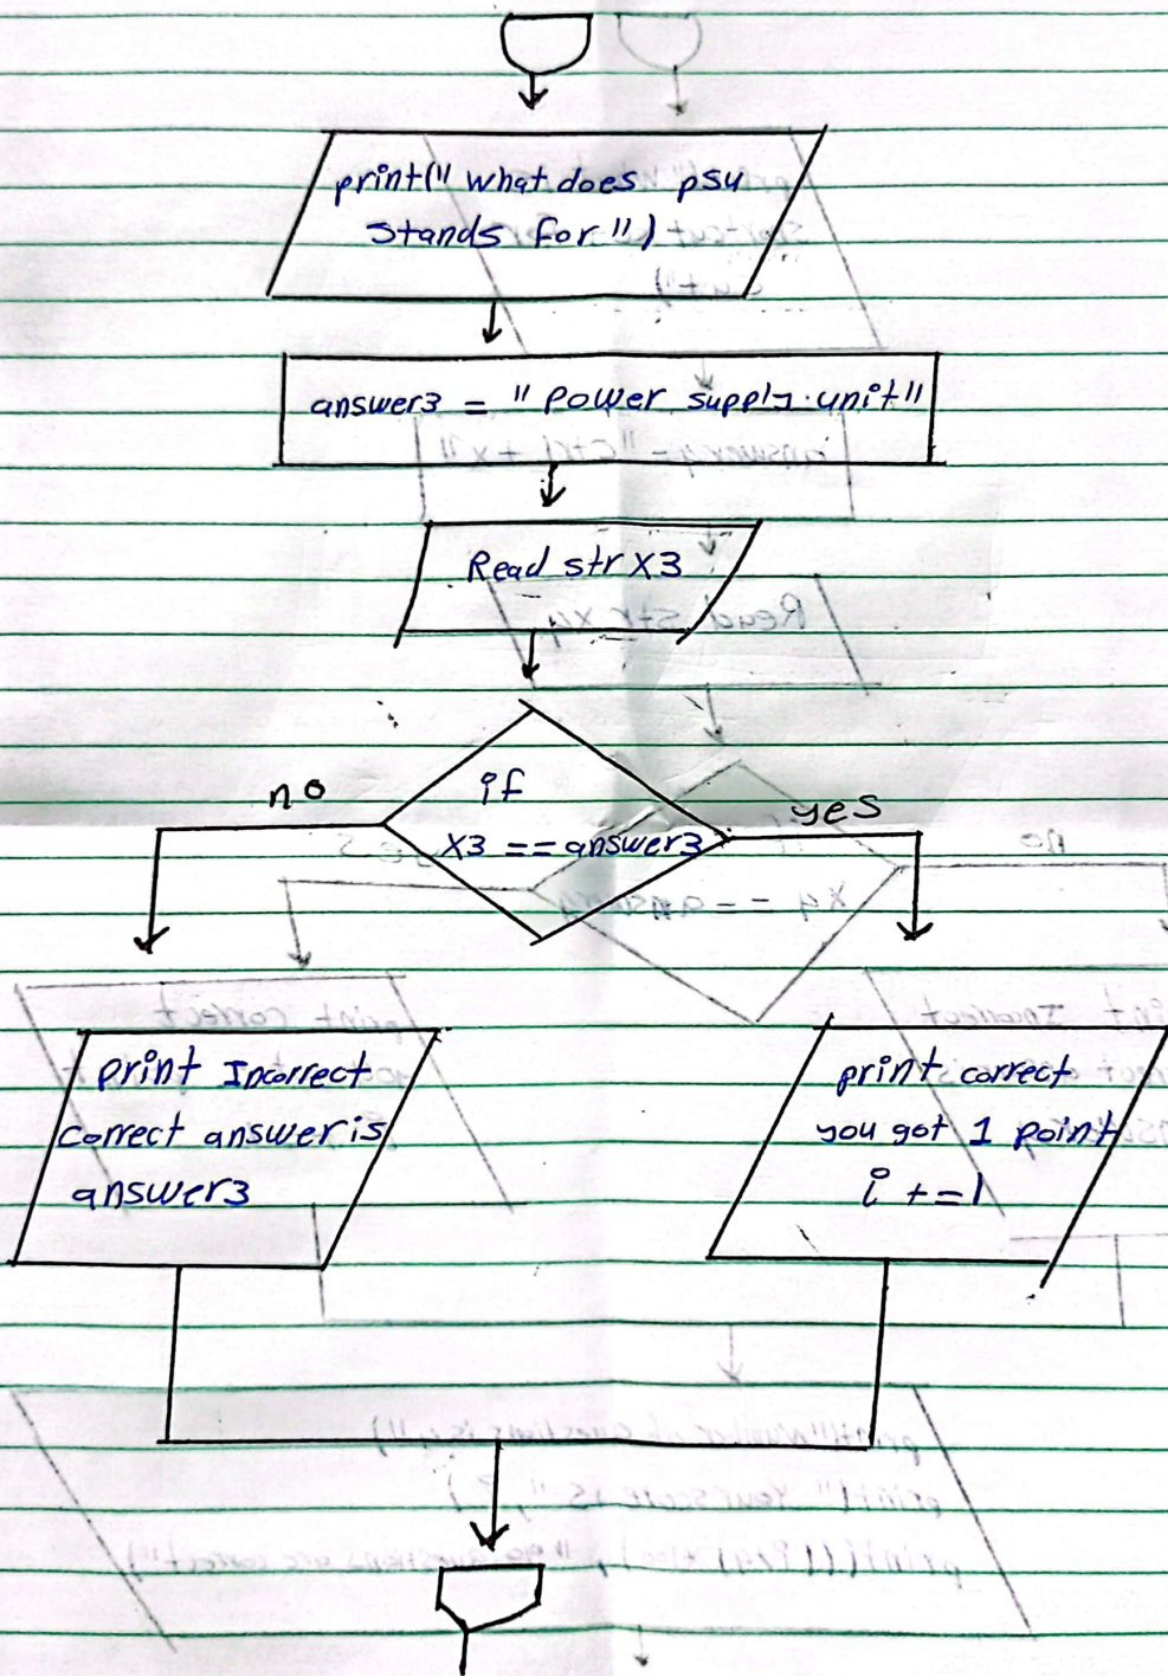 print(" what does psu
stands for ")
answer3 = " power supply unit"
Read str x3
if
x3 == answer3
no
yes
print Incorrect
correct answer is
answer3
print correct
you got 1 point
i += 1